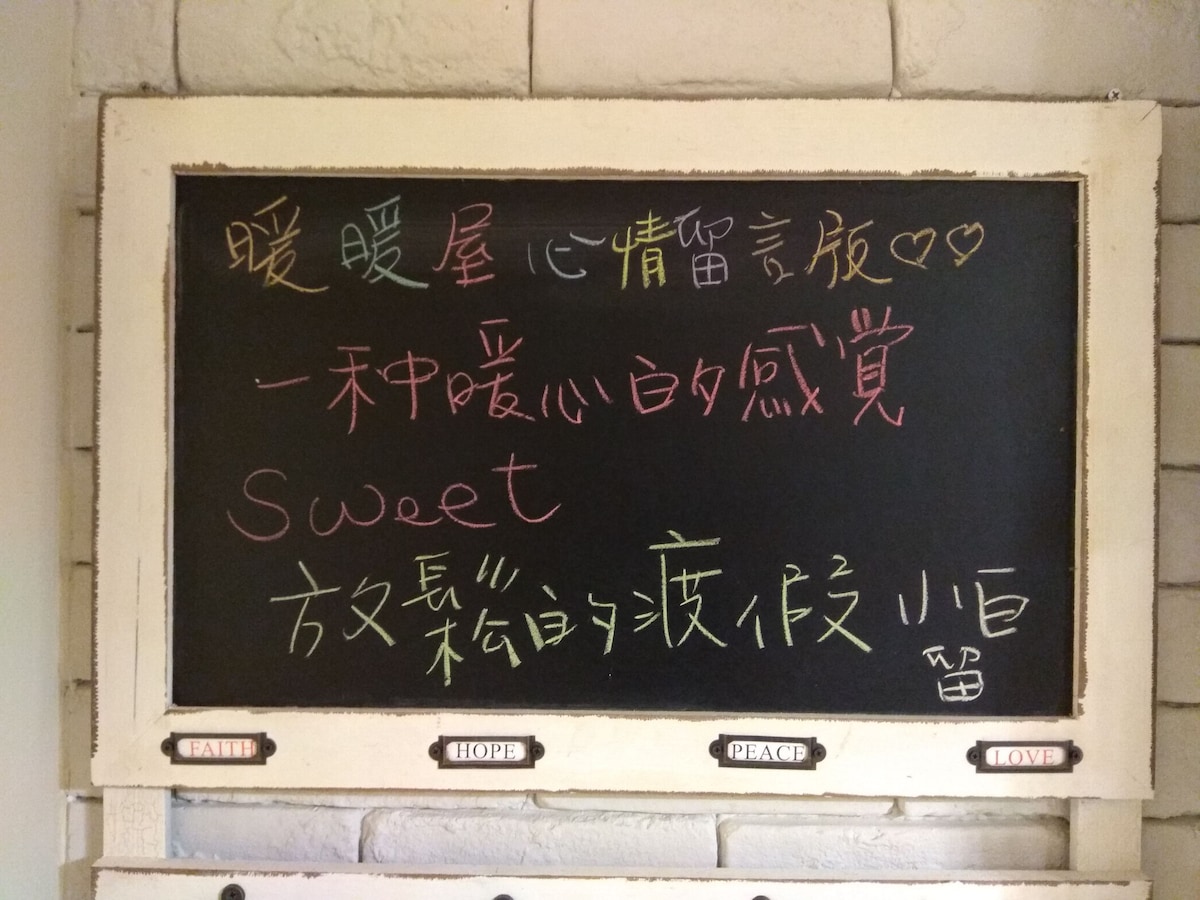 暖暖屋心情留言版♡♡
一种暖心的感覺
sweet
放鬆的渡假小白
留
FAITH HOPE PEACE LOVE